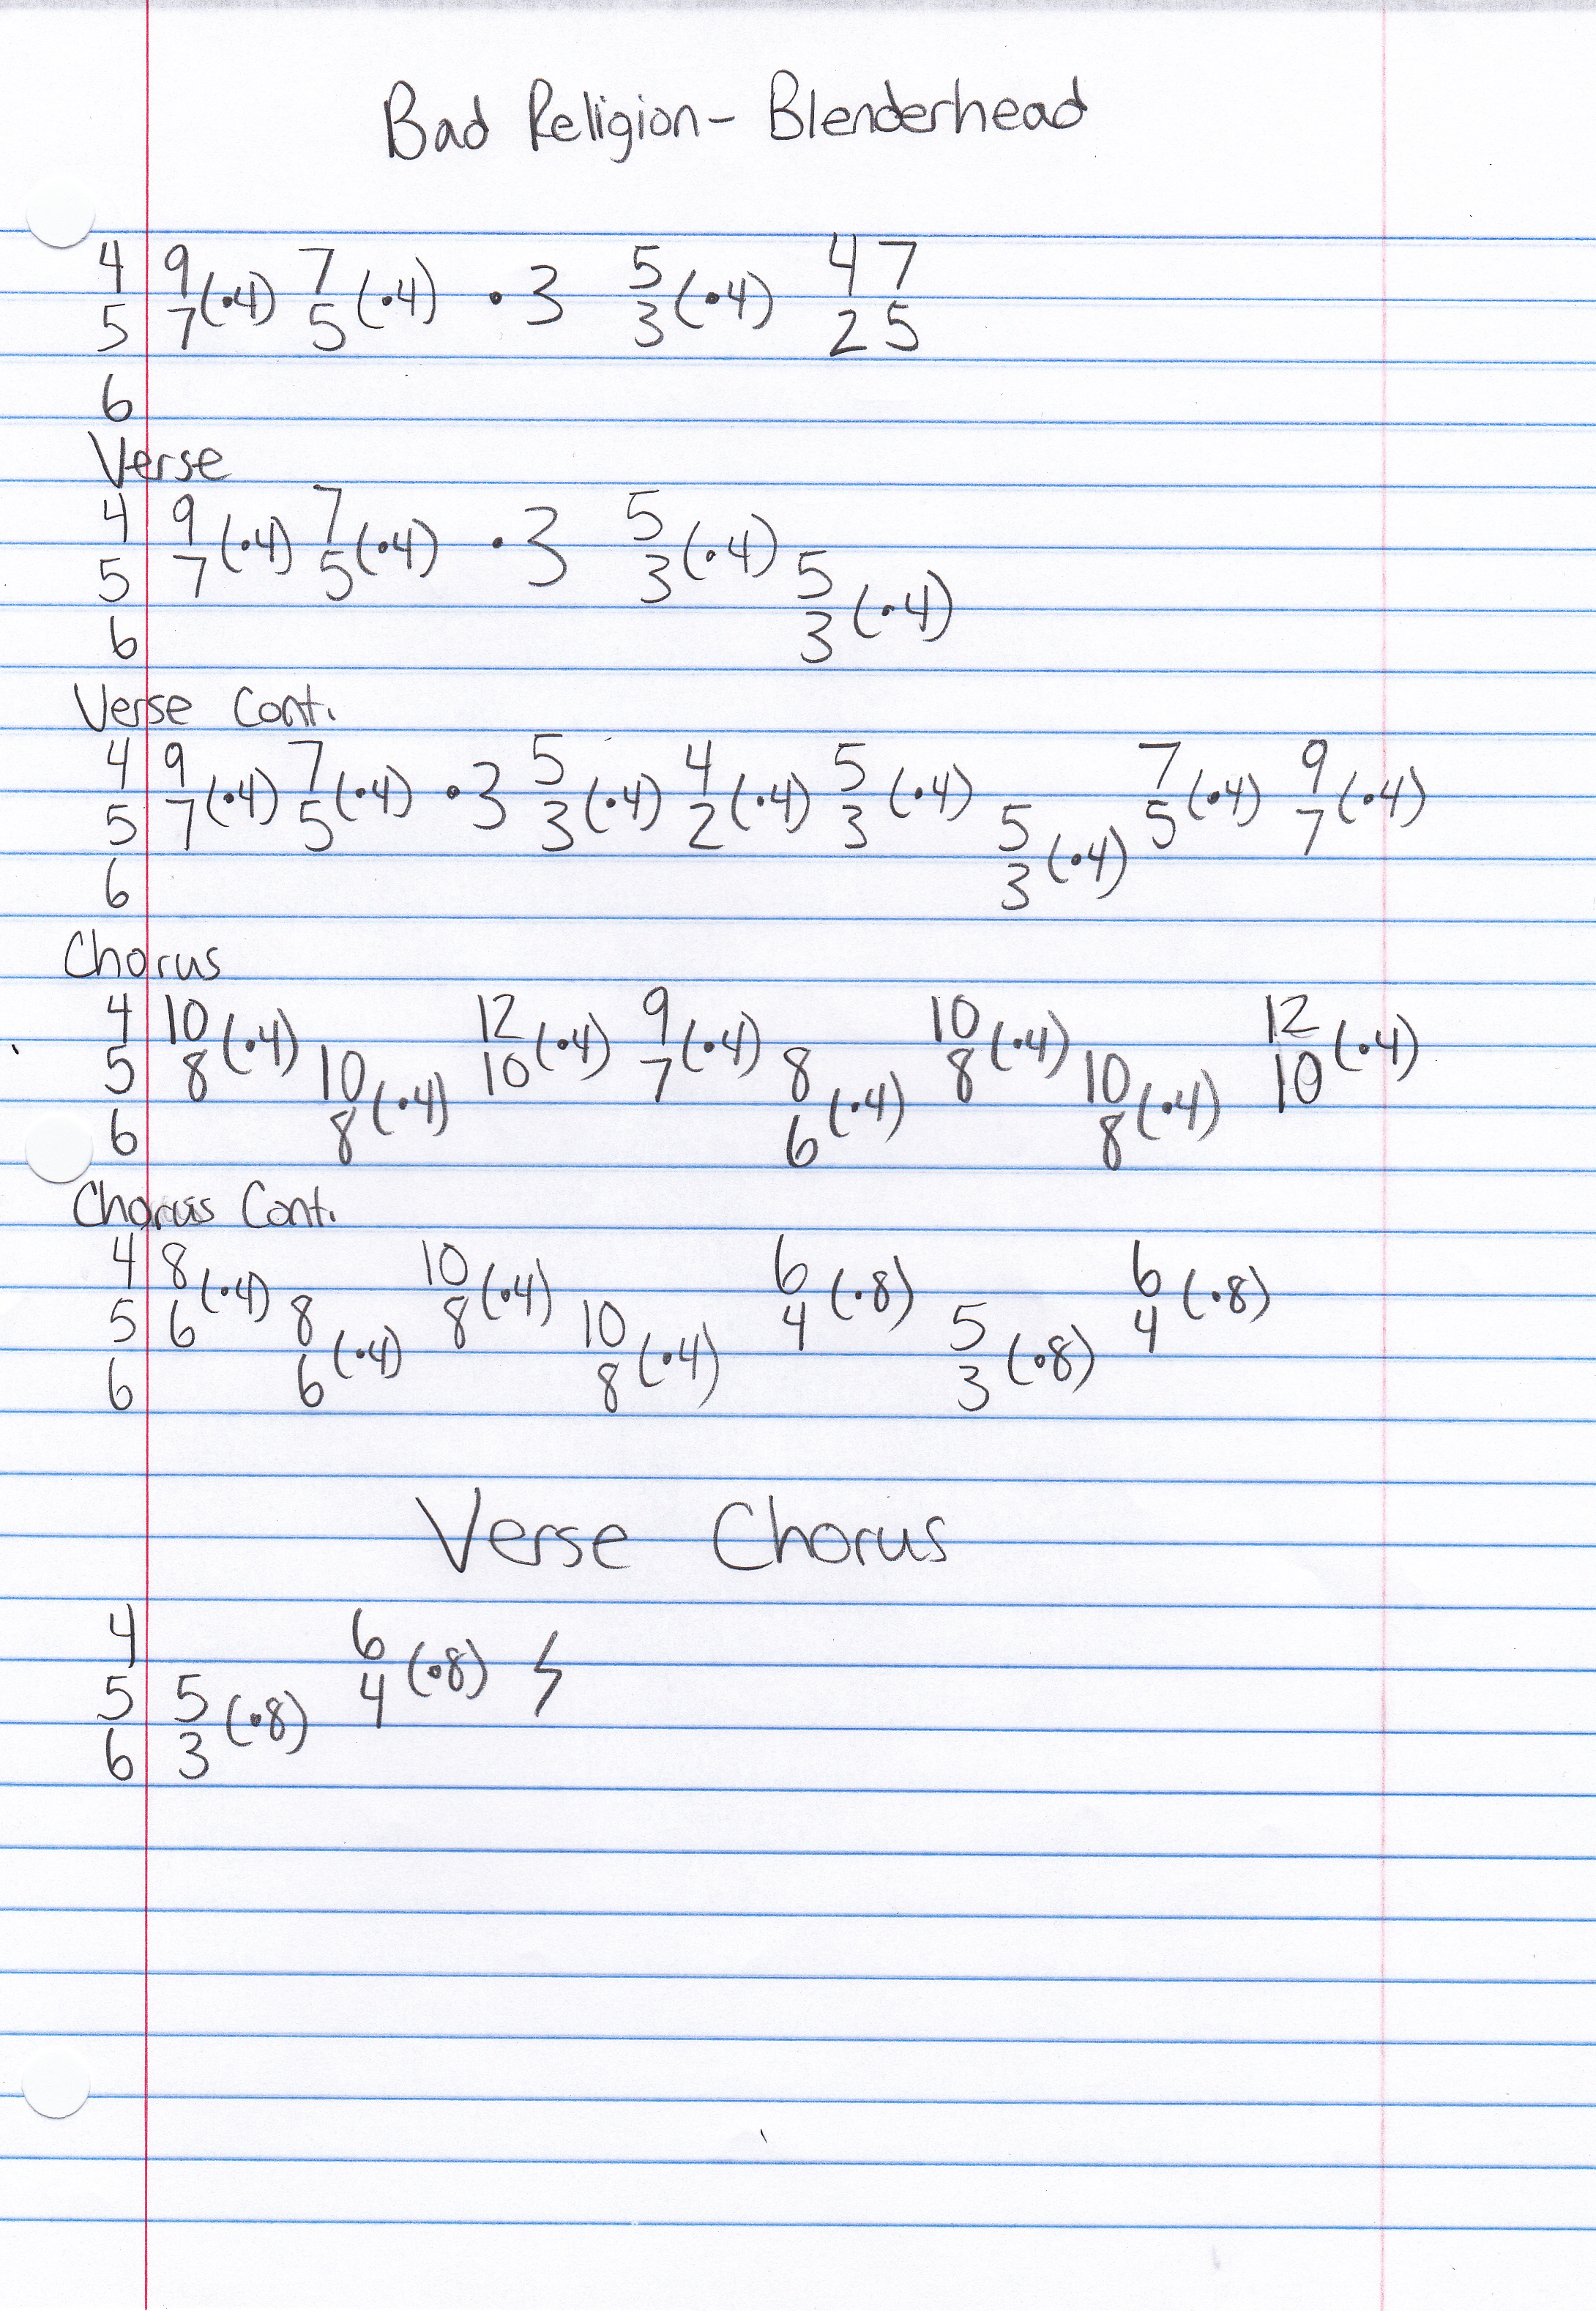 Bad Religion - Blenderhead
4 9 7 4 7
(·4) (·4) ·3 5 (·4)
5 7 5 3 2 5
6
Verse
4 9 7 ·3 5
(·4) (·4) (·4)
5 7 5 3 5
6 3 (·4)
Verse Cont.
4 9 7 5 4 5 7 9
(·4) (·4) ·3 (·4) (·4) (·4) (·4) (·4)
5 7 5 3 2 3 5 5 7
6 3 (·4)
Chorus
4 10 12 9 10 12
(·4) (·4) (·4) (·4) (·4)
5 8 10 10 7 8 8 10 10
(·4) (·4) (·4)
6 8 6 8
Chorus Cont.
4 8 10 6 6
(·4) (·4) (·8) (·8)
5 6 8 8 10 4 5 4
(·4) (·4) (·8)
6 6 8 3
Verse Chorus
4 6
(·8)
5 5 4
(·8)
6 3